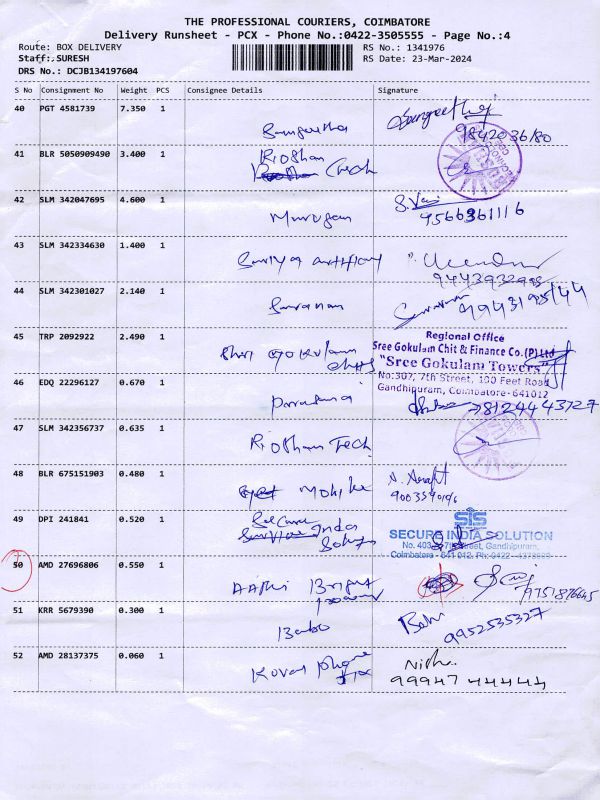 THE PROFESSIONAL COURIERS, COIMBATORE
Delivery Runsheet - PCX - Phone No.:0422-3505555 - Page No.:4
Route: BOX DELIVERY
RS No.: 1341976
Staff: SURESH
RS Date: 23-Mar-2024
DRS No.: DCJB134197604
S No Consignment No Weight PCS Consignee Details Signature
40 PGT 4581739 7.350 1 Sangeetha Sangeetha
41 BLR 5050909490 3.400 1 Rioshan Tech
42 SLM 342047695 4.600 1 Murugan
9566361116
43 SLM 342334630 1.400 1 Suriya
44 SLM 342301027 2.140 1
45 TRP 2092922 2.490 1 Shri Gokulam chits
Regional Office
Sree Gokulam Chit & Finance Co.(P) Ltd
"Sree Gokulam Towers"
No.307, 7th Street, 100 Feet Road
Gandhipuram, Coimbatore-641012
46 EDQ 22296127 0.670 1 7812443727
47 SLM 342356737 0.635 1 Rioshan Tech
48 BLR 675151903 0.480 1
49 DPI 241841 0.520 1 Secure India Soluts
SIS
SECURE INDIA SOLUTION
No. 403, 7th Street, Gandhipuram,
Coimbatore - 641 012. Ph: 0422 -
50 AMD 27696806 0.550 1 Aathi Bright
51 KRR 5679390 0.300 1 Babu Babu
9952535327
52 AMD 28137375 0.060 1 Kovai Nisha.
99947 44444